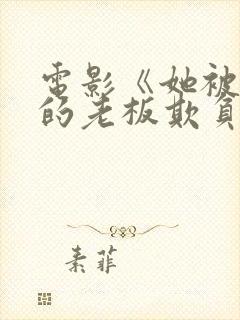 電影《她被
的老板欺負
素菲